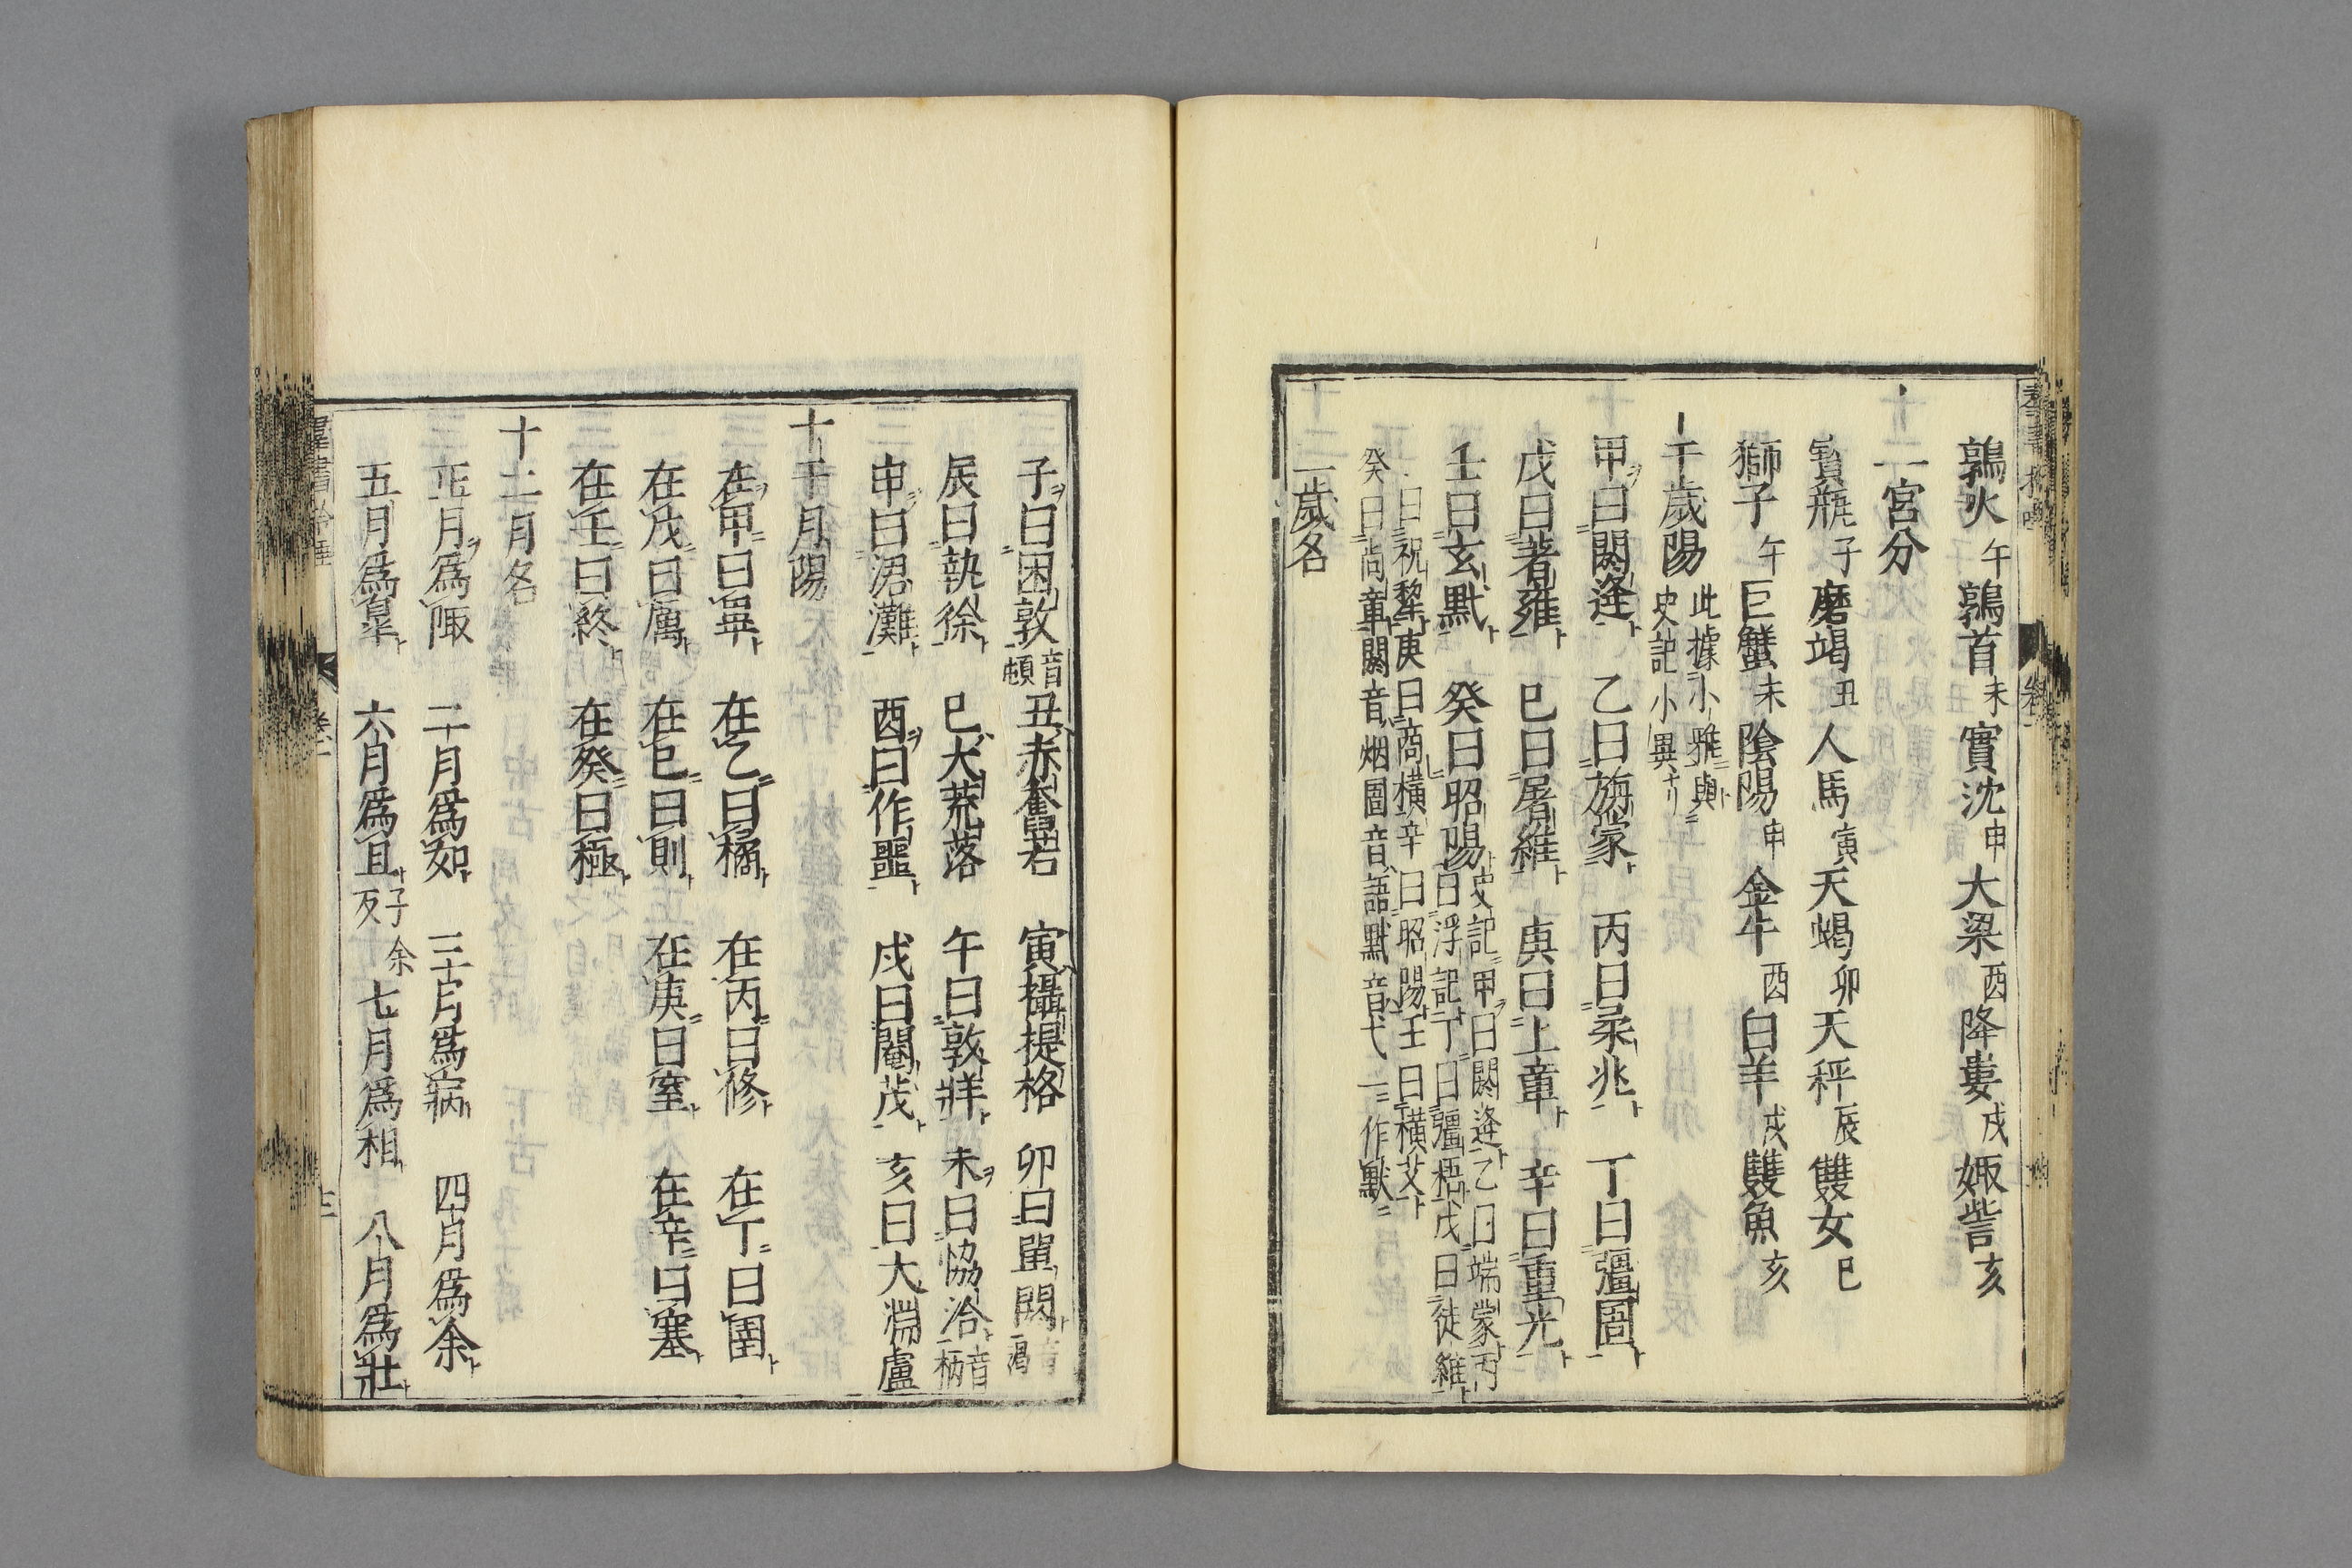 鶉火午鶉首未實沈申大梁酉降婁戌娵訾亥
十二宮分
寳瓶子磨竭丑人馬寅天蝎卯天秤辰雙女巳
獅子午巨蟹未陰陽申金牛酉白羊戌雙魚亥
十歲陽此據小雅與史記小異
甲曰閼逢 乙曰旃蒙 丙曰柔兆 丁曰彊圉
戊曰著雍 巳曰屠維 庚曰上章 辛曰重光
壬曰玄黓 癸曰昭陽史記甲曰閼逢乙曰端蒙丙
曰浮記丁曰疆梧戊曰徒維
曰祝犂庚曰商橫辛曰昭陽壬曰橫艾
癸曰尚章閼音烟圉音語黓音弋一作默
十二歲名
子曰困敦音頓丑赤奮若 寅攝提格 卯曰單閼音遏
辰曰執徐 巳大荒落 午曰敦牂 未曰協洽音柄
申曰涒灘 酉曰作噩 戌曰閹茂 亥曰大淵盧
十干月陽
在甲曰畢 在乙曰橘 在丙曰修 在丁曰圉
在戊曰厲 在巳曰則 在庚曰窒 在辛曰塞
在壬曰終 在癸曰極
十二月名
正月爲陬 二月爲如 三月爲病 四月爲余
五月爲皐 六月爲且子余反七月爲相 八月爲壯